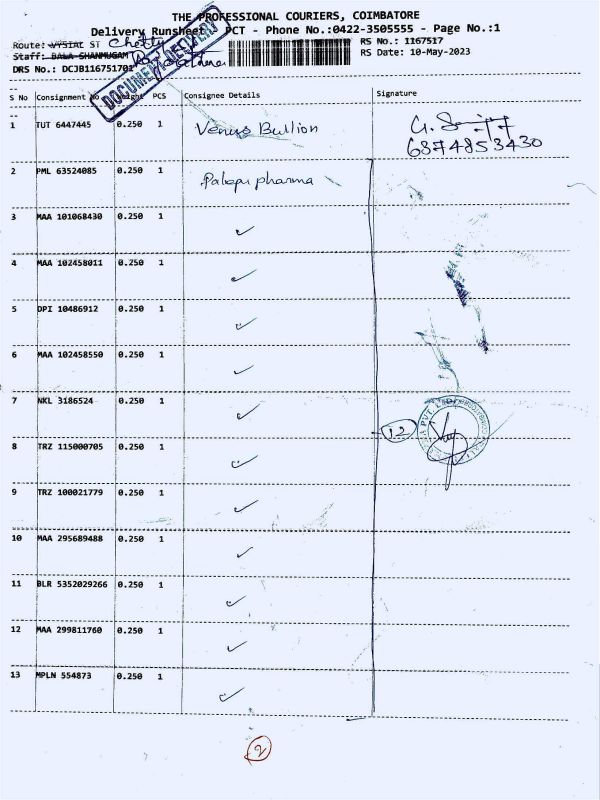 THE PROFESSIONAL COURIERS, COIMBATORE
Delivery Runsheet PCT - Phone No.:0422-3505555 - Page No.:1
Route: VYSIAL ST Chetty RS No.: I167517
Staff: BALA SHANMUGAM RS Date: 10-May-2023
DRS No.: DCJB116751701
DOCUMENT DELIVERY
S No Consignment No Weight PCS Consignee Details Signature
1 TUT 6447445 0.250 1 Venus Bullion
6374853430
2 PML 63524085 0.250 1 pharma
3 MAA 101068430 0.250 1 ✓
4 MAA 102458011 0.250 1 ✓
5 DPI 10486912 0.250 1 ✓
6 MAA 102458550 0.250 1 ✓
7 NKL 3186524 0.250 1 ✓
12
8 TRZ 115000705 0.250 1 ✓
9 TRZ 100021779 0.250 1 ✓
10 MAA 295689488 0.250 1 ✓
11 BLR 5352029266 0.250 1 ✓
12 MAA 299811760 0.250 1 ✓
13 MPLN 554873 0.250 1 ✓
2